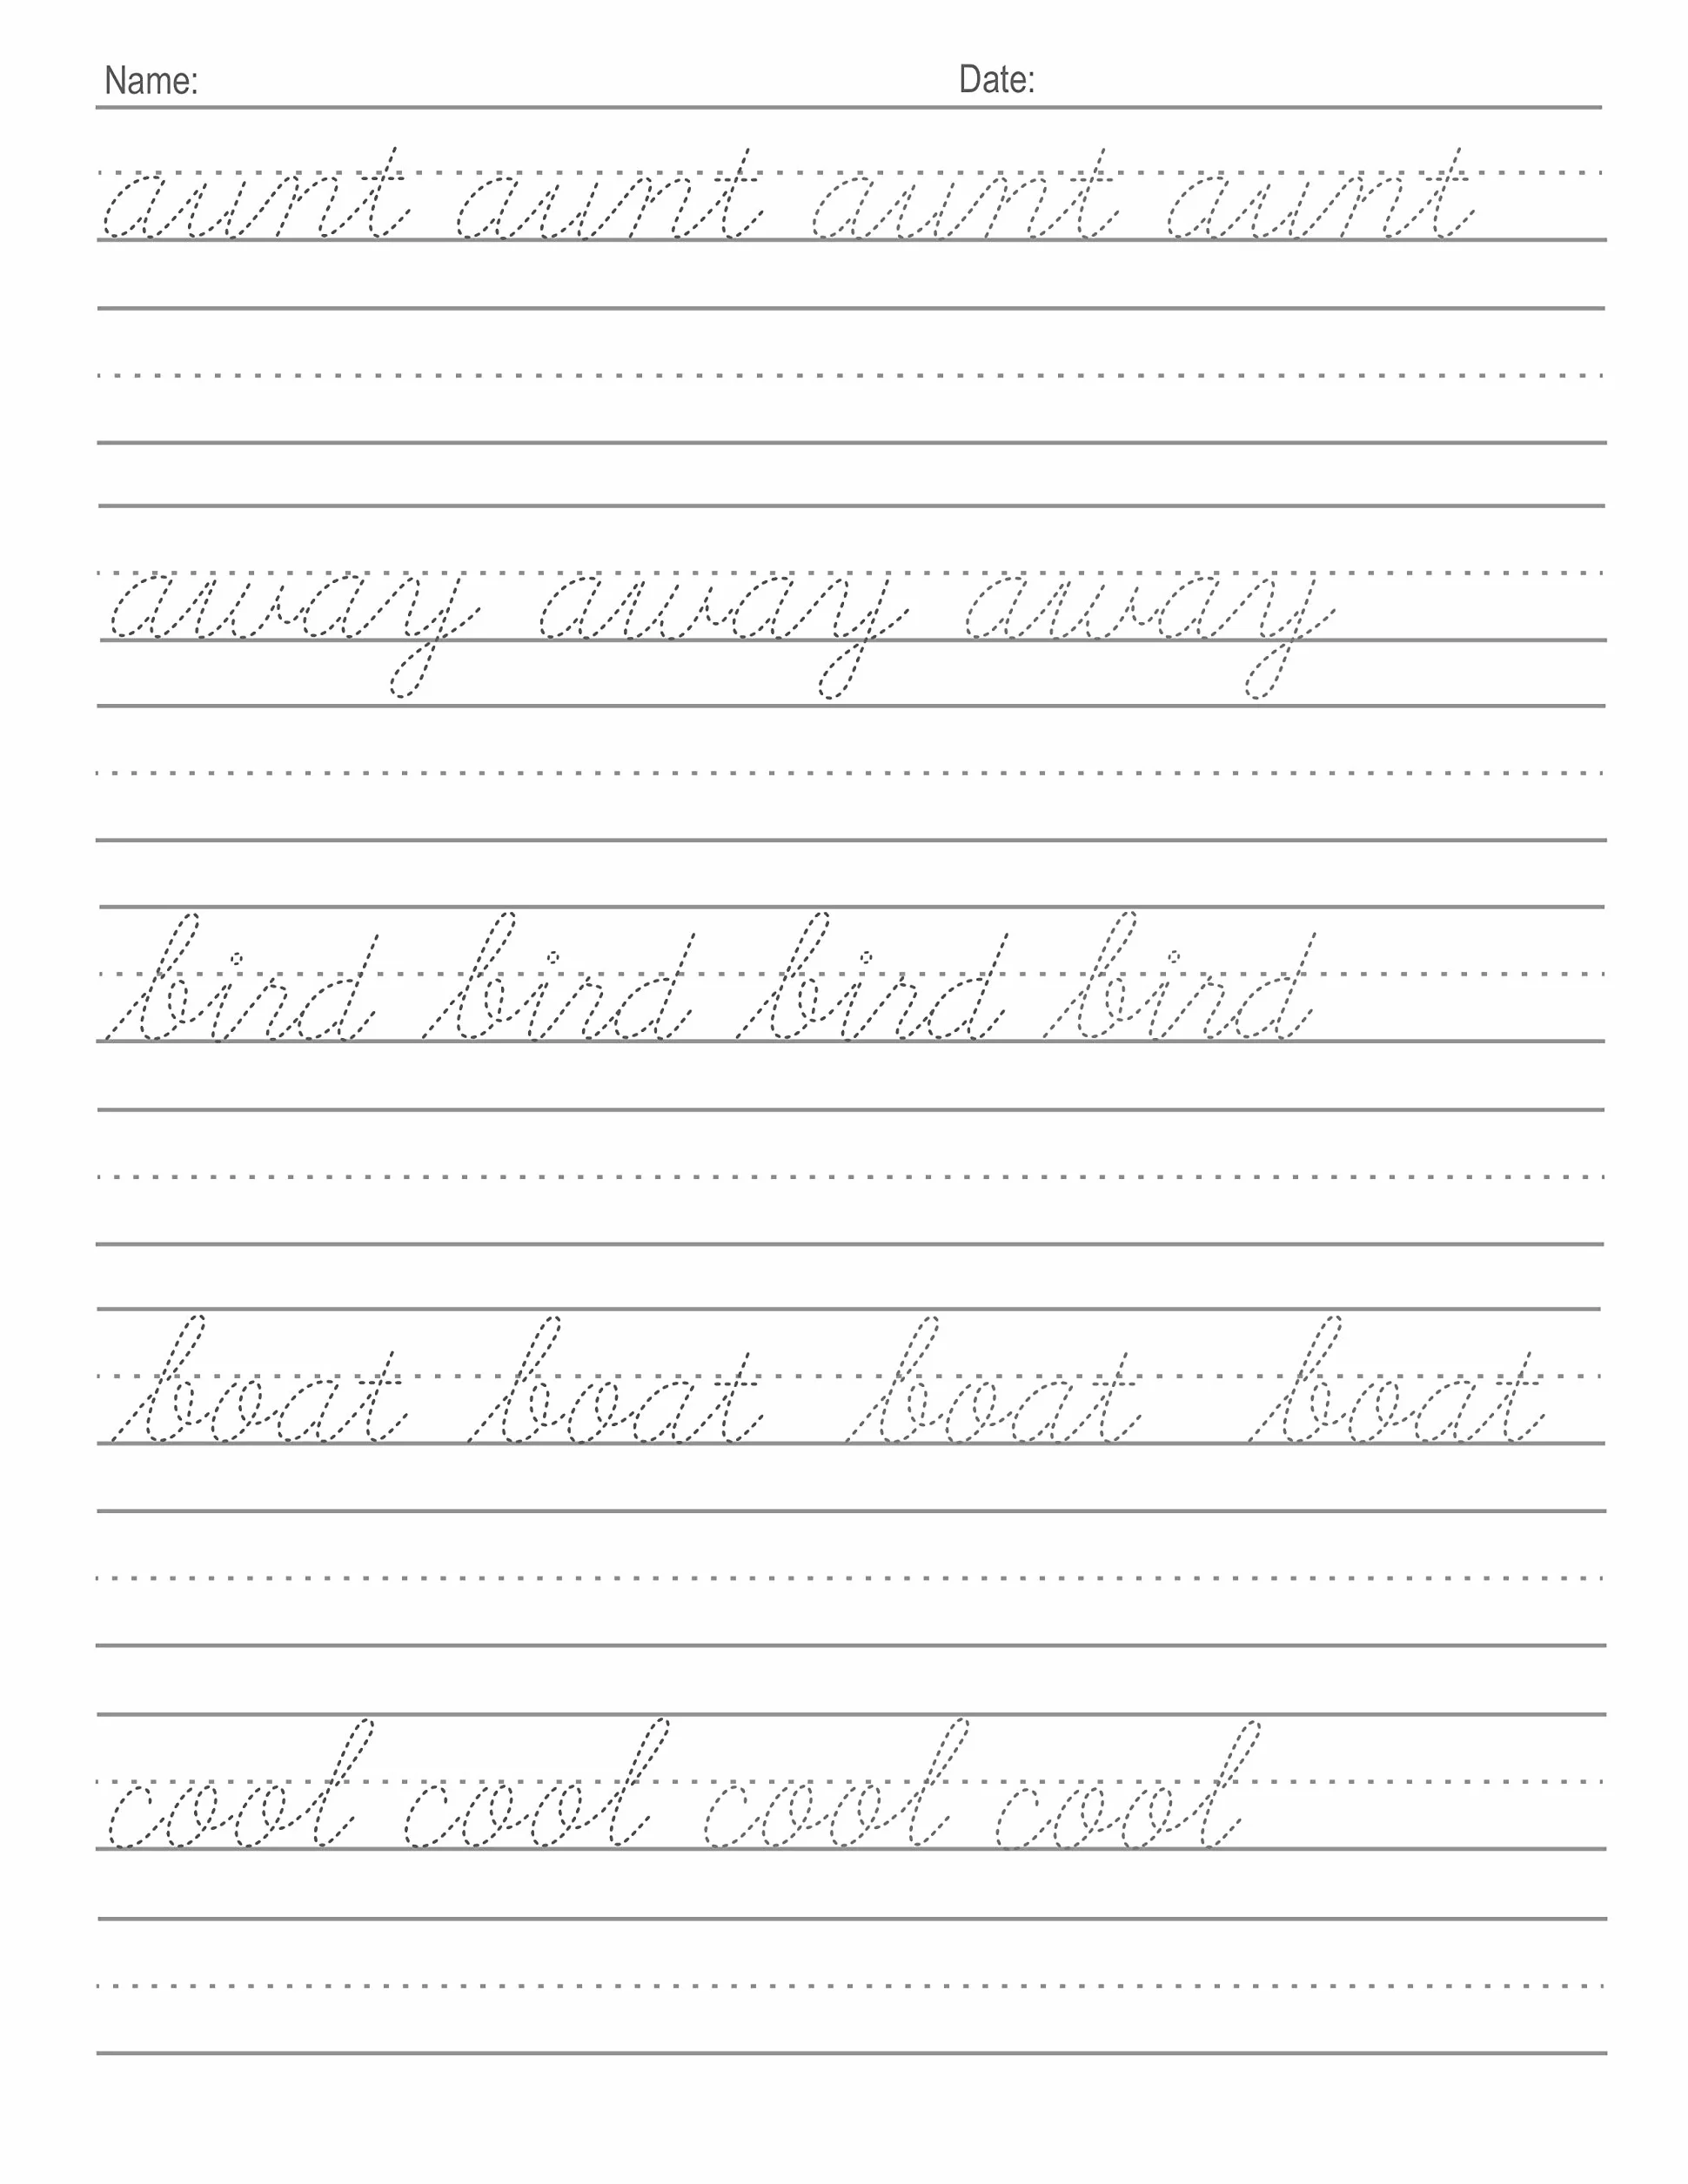 Name: Date:
aunt aunt aunt aunt
away away away
bind bind bind bind
boat boat boat boat
cool cool cool cool